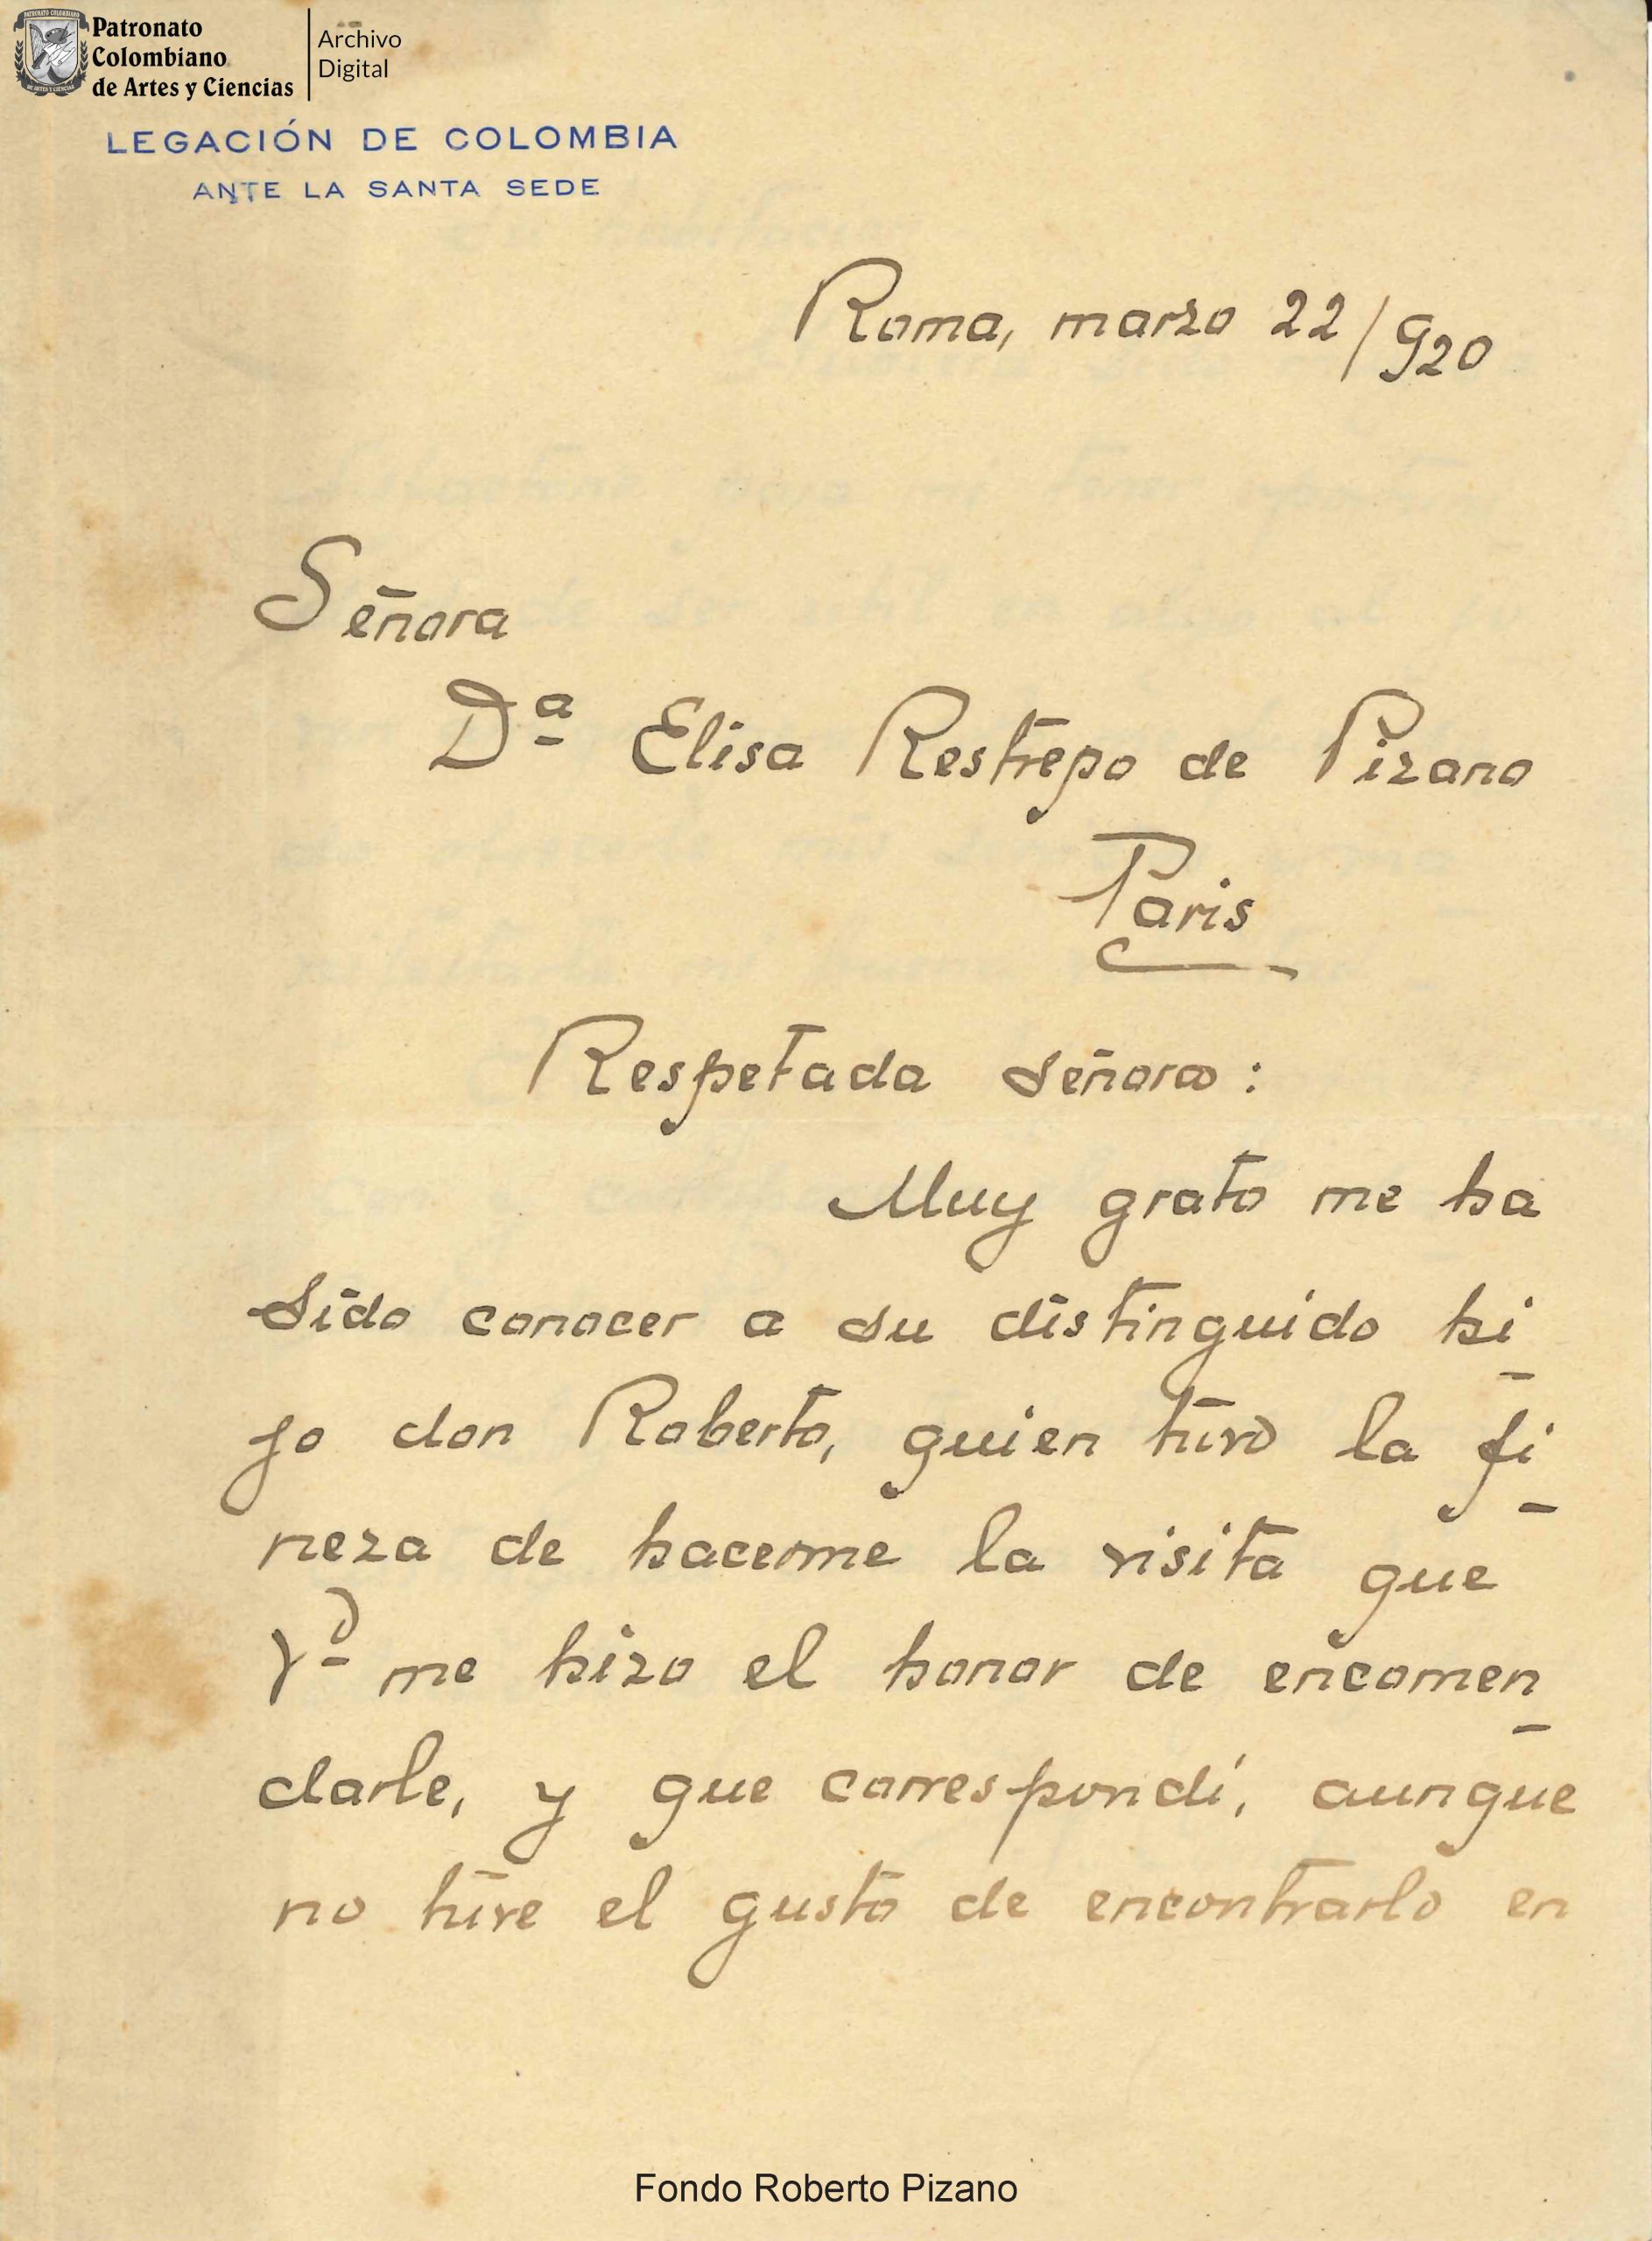 Patronato
Colombiano
de Artes y Ciencias
Archivo
Digital
LEGACIÓN DE COLOMBIA
ANTE LA SANTA SEDE
Roma, marzo 22/920
Señora
Dª Elisa Restrepo de Pizano
Paris
Respetada señora:
Muy grato me ha
sido conocer a su distinguido hi-
jo don Roberto, quien tuvo la fi-
neza de hacerme la visita que
Vd me hizo el honor de encomen-
darle, y que correspondí, aunque
no tuve el gusto de encontrarlo en
Fondo Roberto Pizano